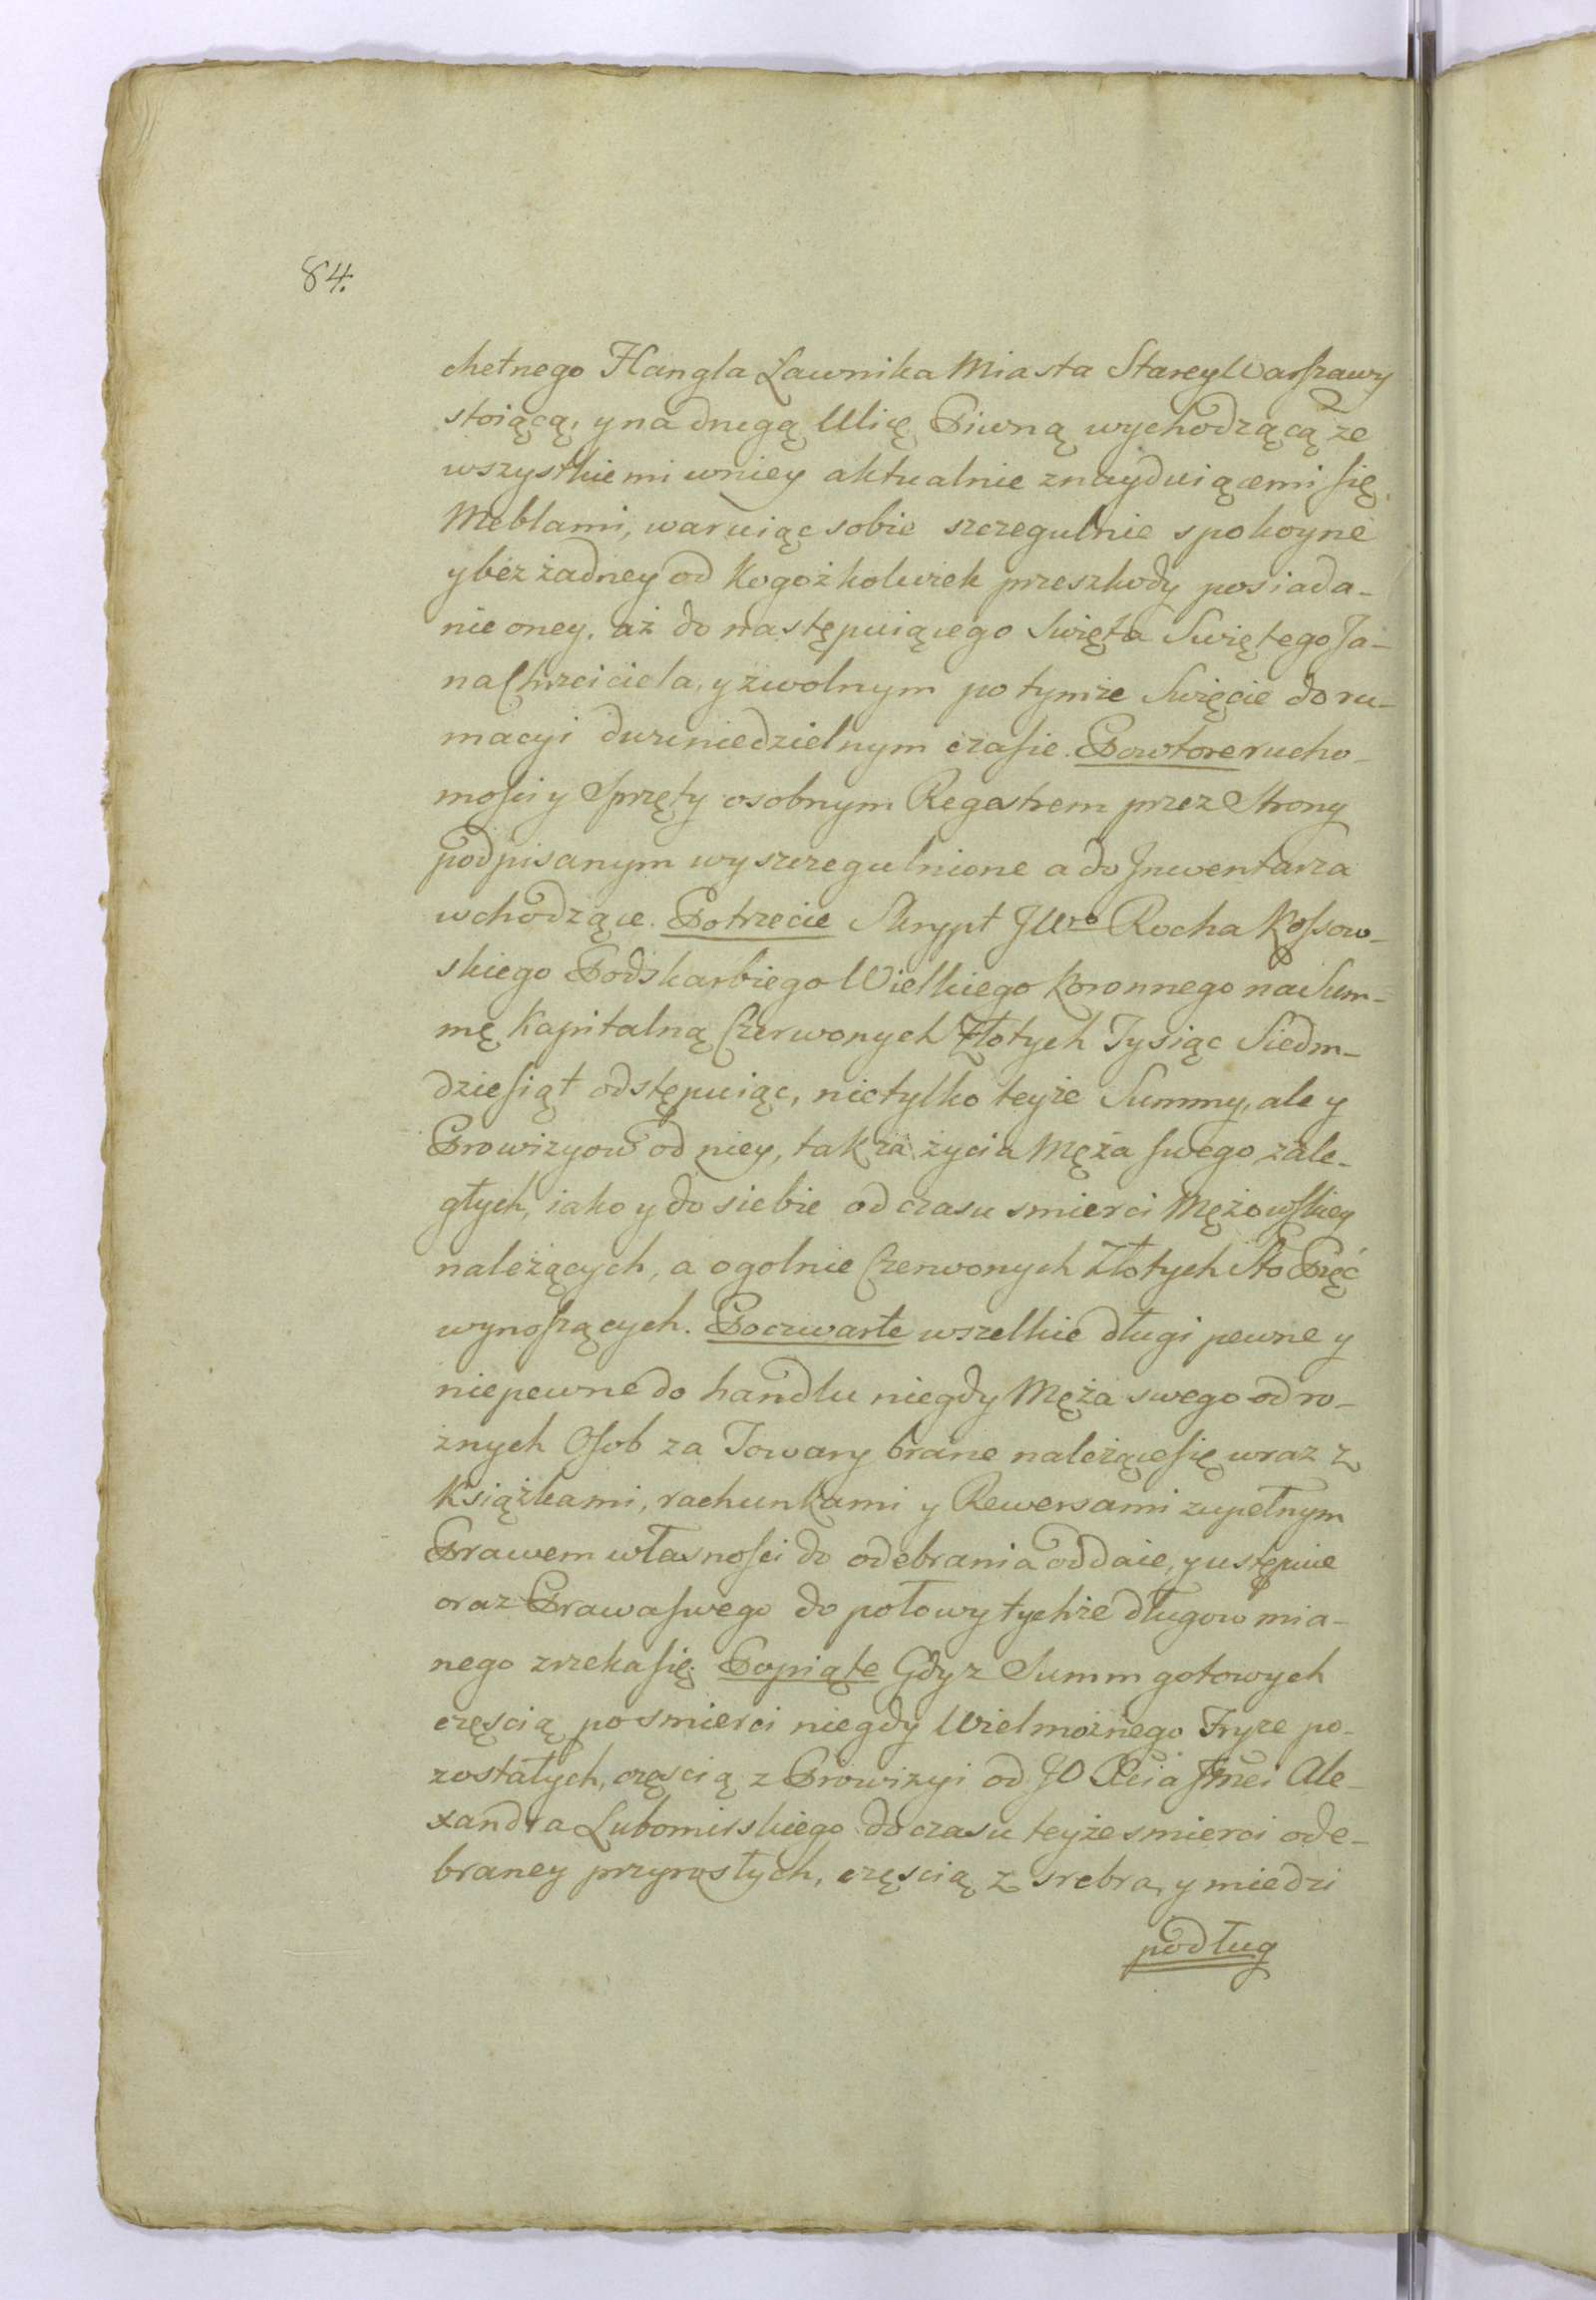 84.
chetnego Hangla Ławnika Miasta Starey Warszawy
stoiącą, y na drugą Ulię Piwną wychodzącą ze
wszystkiemi wniey aktualnie znayduiącemi się
Meblami, waruiąc sobie szczegulnie spokoyne
y bez żadney od kogożkolwiek przeszkody posiada-
nie oney, aż do następuiącego Swięta Swiętego Ja-
na Chrzciciela, y zwolnym po tymże Swięcie do ru-
macyi dwuniedzielnym czasie. Powtore rucho-
mosci y Sprzęty osobnym Regestrem przez Strony
podpisanym wyszczegulnione a do Inwentarza
wchodzące. Potrzecie Skrypt JWo Rocha Kossow-
skiego Podskarbiego Wielkiego Koronnego na Sum-
mę Kapitalną Czerwonych Złotych Tysiąc Siedm-
dziesiąt odstępuiąc, nietylko teyże Summy, ale y
Prowizyow od niey, tak za życia Męża swego zale-
głych, iako y do siebie od czasu smierci Mężowskiey
należących, a ogolnie Czerwonych Złotych Sto Pięć
wynoszących. Poczwarte wszelkie długi pewne y
niepewne do handlu niegdy Męża swego od ro-
żnych Osob za Towary brane należące się wraz z
Książkami, rachunkami y Rewersami zupełnym
Prawem własnosci do odebrania oddaie, y ustępuie
oraz Prawa swego do połowy tychże długow mia-
nego zrzeka się. Popiąte Gdy z Summ gotowych
częscią po smierci niegdy Wielmożnego Fryze po-
zostałych, częscią z Prowizyi od JO Xcia Jmci Ale-
xandra Lubomirskiego do czasu teyże smierci ode-
braney przyrosłych, częscią z srebra, y miedzi
podług